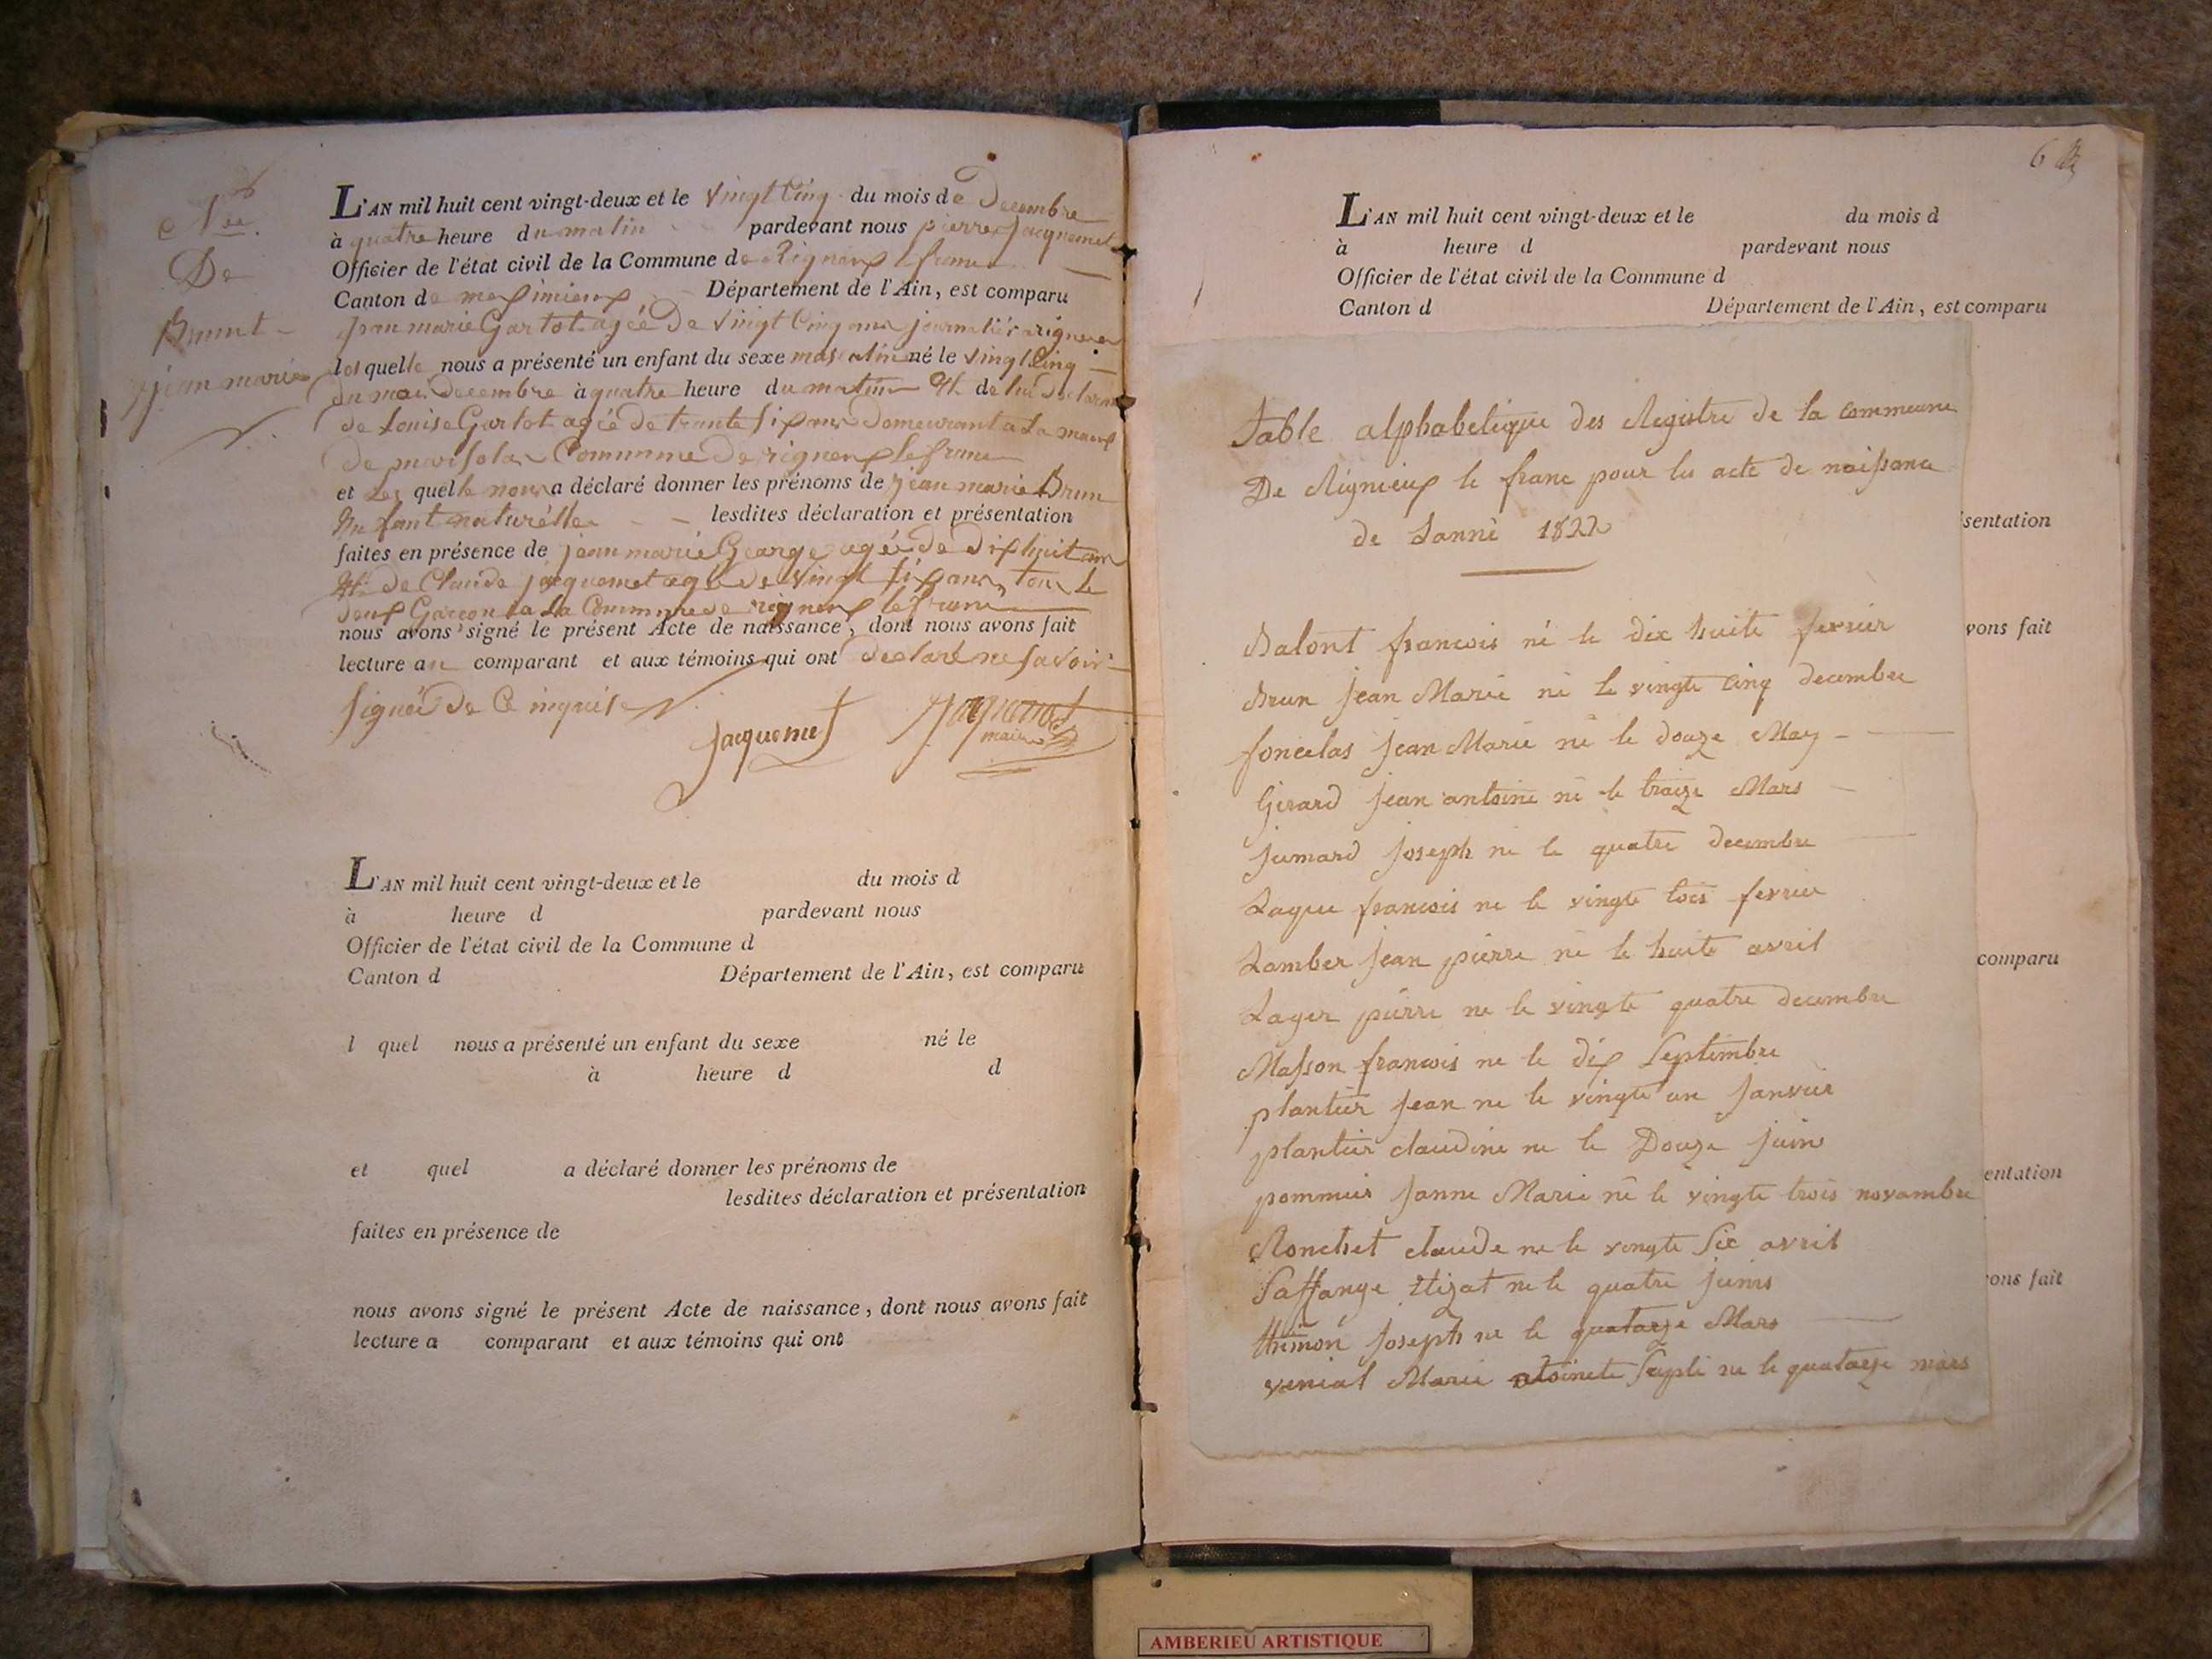 Née
De
Brunt
jean marie
L'AN mil huit cent vingt-deux et le vingt Cinq du mois de Decembre
à quatre heure du matin pardevant nous pierre Jacquemet
Officier de l'état civil de la Commune de Rigneux le franc
Canton de meximieux Département de l'Ain, est comparu
jean marie Gartot agée De vingt Cinq ans journalier a rigneux
lesquelle nous a présenté un enfant du sexe masculin né le vingt Cinq
du mois decembre à quatre heure du matin de lui declarant
de Louise Gartot agée de trante six ans Demeurant a La
De Commune De rigneux le franc
et les quelle nous a déclaré donner les prénoms de jean marie Brun
Enfant naturélle lesdites déclaration et présentation
faites en présence de jean marie George agée de Dix huit ans
de Claude jacquemet agé de vingt six ans tous le
deux Garcon a La Commune de rigneux le franc
nous avons signé le présent Acte de naissance, dont nous avons fait
lecture au comparant et aux témoins qui ont declaré ne savoir
signée de Ce
Jacquemet Jacquemet
maire
L'AN mil huit cent vingt-deux et le du mois d
à heure d pardevant nous
Officier de l'état civil de la Commune d
Canton d Département de l'Ain, est comparu
l quel nous a présenté un enfant du sexe né le
à heure d d
et quel a déclaré donner les prénoms de
lesdites déclaration et présentation
faites en présence de
nous avons signé le présent Acte de naissance, dont nous avons fait
lecture a comparant et aux témoins qui ont
6
L'AN mil huit cent vingt-deux et le du mois d
à heure d pardevant nous
Officier de l'état civil de la Commune d
Canton d Département de l'Ain, est comparu
Table alphabetique des Registre de la commune
De Rignieux le franc pour les acte de naissance
de Lannè 1822
sentation
Balont francois né le dix huite fevrier
vons fait
Brun Jean Marie né le vingte cinq decembre
foncelas Jean Marie né le douze May
Girard Jean antoine né le traize Mars
Jumard Joseph né le quatre decembre
Lague francois ne le vingte tois fevrier
Lamber Jean pierre né le huite avril
comparu
Lager pierre ne le vingte quatre decembre
Masson francois ne le dix Septembre
plantier Jean ne le vingte un Janvier
plantier claudine ne le Douze juin
entation
pommier Janne Marie né le vingte trois novambre
Ronchet claude ne le vingte Six avril
Saffange ne le quatre juins
ons fait
thimon Joseph ne le quatarze Mars
venial Marie atoinete ne le quatarze mars
AMBERIEU ARTISTIQUE